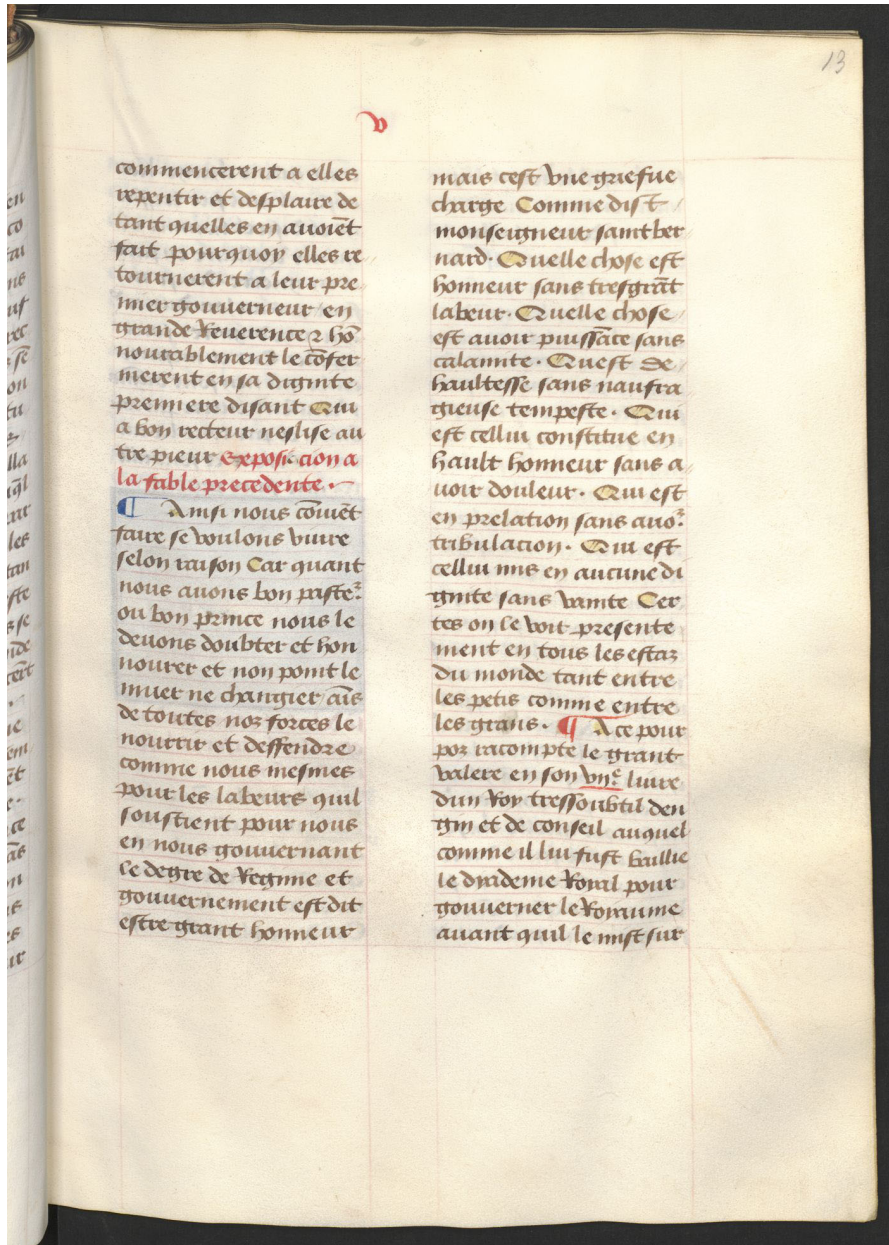 13
v
commencerent a elles
repentir et desplaire de
tant quelles en auoiēt
fait pourquoy elles re
tournerent a leur pre
mier gouuerneur en
grande Reuerence ⁊ hō
nourablement le cōfer
merent en sa dignite
premiere disant Qui
a bon recteur neslise au
tre pieur exposicion a
la fable precedente .
¶ Ainsi nous cōuiēt
faire se voulons viure
selon raison Car quant
nous auons bon paste
ou bon prince nous le
deuons doubter et hon
nourer et non point le
muer ne changier ais̄
de toutes noz forces le
nourrir et deffendre
comme nous mesmes
pour les labeurs quil
soustient pour nous
en nous gouuernant
le degre de Regime et
gouuernement est dit
estre grant honneur
mais cest vne griefue
charge Comme dist
monseigneur saint ber
nard. Quelle chose est
honneur sans tresgrāt
labeur. Quelle chose
est auoir puissāce sans
calamite. Quest de
haultesse sans naufra
gieuse tempeste. Qui
est cellui constitue en
hault honneur sans a
uoir douleur. Qui est
en prelation sans auo
tribulacion. Qui est
cellui mis en aucune di
gnite sans vanite Cer
tes on le voit presente
ment en tous les estaz
du monde tant entre
les petis comme entre
les grans. ¶ A ce pour
poz racompte le grant
valere en son vııᵉ liure
dun Roy tressoubtil den
gin et de conseil auquel
comme il lui fust baillie
le dyademe Royal pour
gouuerner le Royaume
auant quil le mist sur